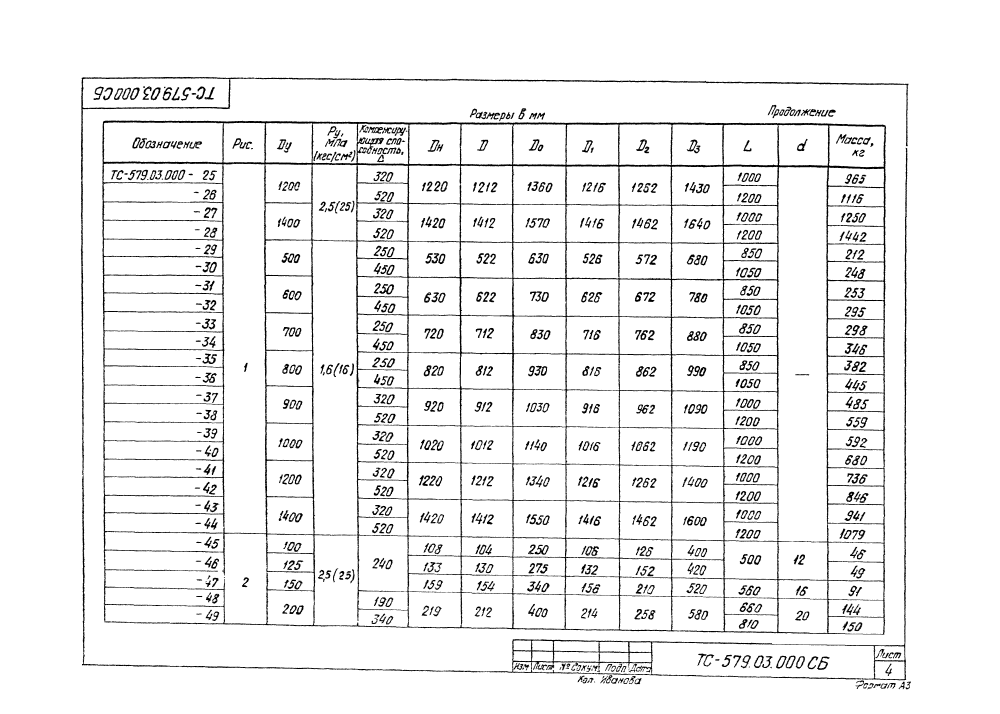 ТС-579.03.000 СБ
Размеры в мм
Продолжение
Обозначение Рис. Dу Ру, МПа (кгс/см²) Компенсирующая способность, Δ Dн D D₀ D₁ D₂ D₃ L d Масса, кг
ТС-579.03.000 - 25 1 1200 2,5(25) 320 1220 1212 1360 1216 1262 1430 1000 — 965
- 26 520 1200 1116
- 27 1400 320 1420 1412 1570 1416 1462 1640 1000 1250
- 28 520 1200 1442
- 29 500 1,6(16) 250 530 522 630 526 572 680 850 212
- 30 450 1050 248
- 31 600 250 630 622 730 626 672 780 850 253
- 32 450 1050 295
- 33 700 250 720 712 830 716 762 880 850 298
- 34 450 1050 346
- 35 800 250 820 812 930 816 862 990 850 382
- 36 450 1050 445
- 37 900 320 920 912 1030 916 962 1090 1000 485
- 38 520 1200 559
- 39 1000 320 1020 1012 1140 1016 1062 1190 1000 592
- 40 520 1200 680
- 41 1200 320 1220 1212 1340 1216 1262 1400 1000 736
- 42 520 1200 846
- 43 1400 320 1420 1412 1550 1416 1462 1600 1000 941
- 44 520 1200 1079
- 45 2 100 2,5(25) 240 108 104 250 106 126 400 500 12 46
- 46 125 133 130 275 132 152 420 49
- 47 150 159 154 340 156 210 520 560 16 91
- 48 200 190 219 212 400 214 258 580 660 20 144
- 49 340 810 150
Изм Лист № докум. Подп. Дата
ТС-579.03.000 СБ
Лист
4
Кол. Иванова
Формат А3